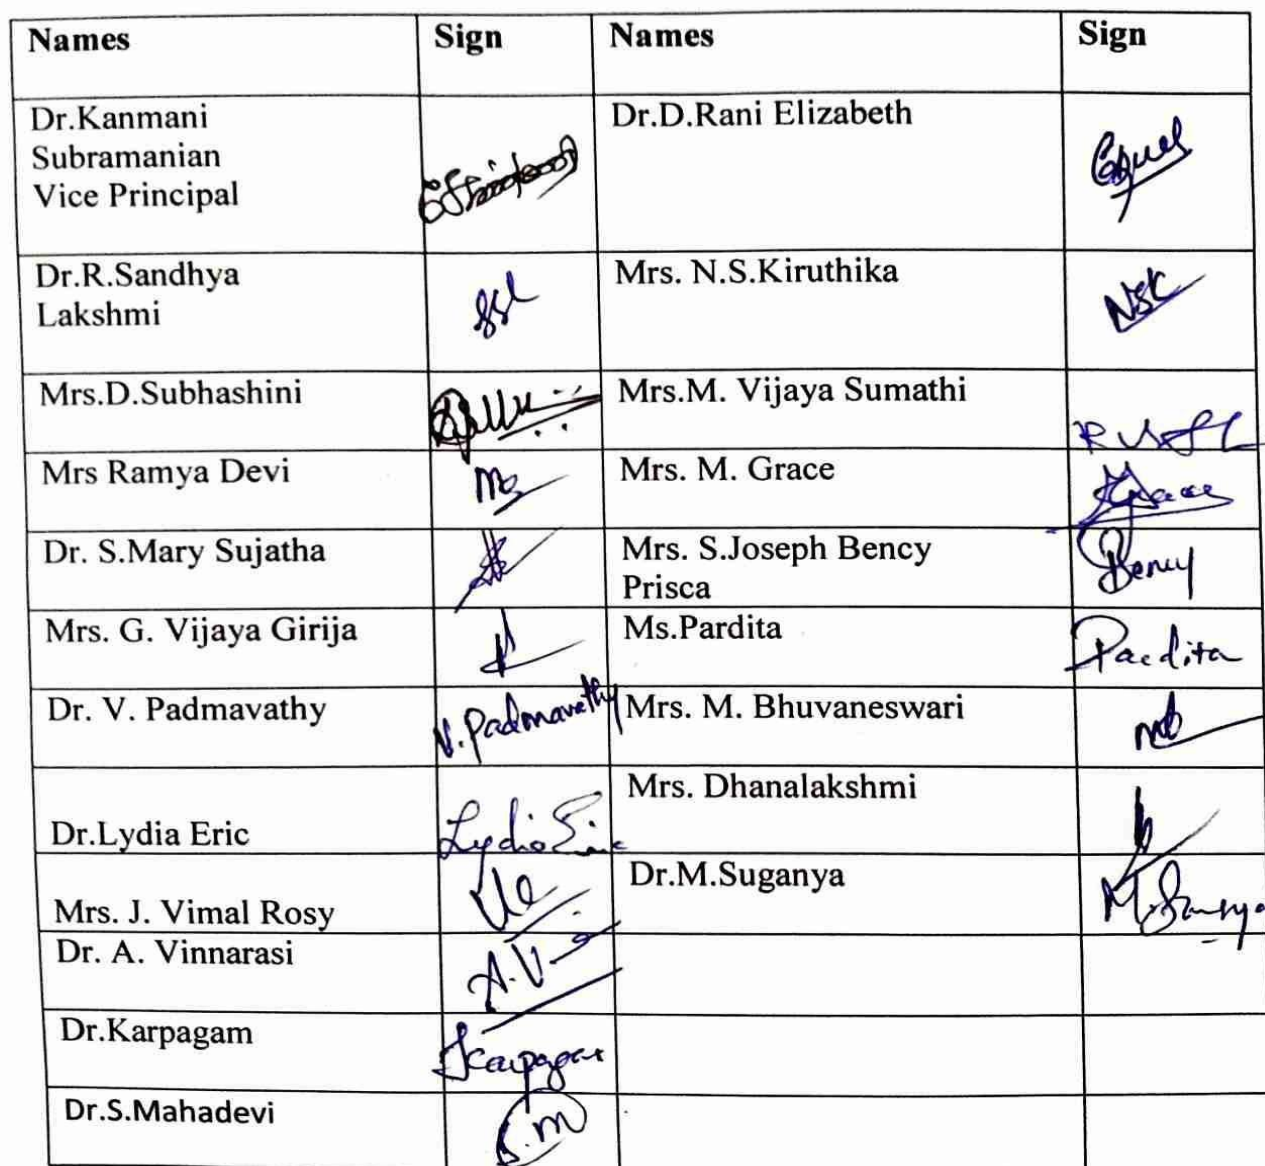 Names Sign Names Sign
Dr.Kanmani
Subramanian
Vice Principal
Dr.D.Rani Elizabeth
Dr.R.Sandhya
Lakshmi
Mrs. N.S.Kiruthika
NSK
Mrs.D.Subhashini
Mrs.M. Vijaya Sumathi
Mrs Ramya Devi
Mrs. M. Grace
Grace
Dr. S.Mary Sujatha
Mrs. S.Joseph Bency
Prisca
Bency
Mrs. G. Vijaya Girija
Ms.Pardita
Pardita
Dr. V. Padmavathy
V. Padmavathy
Mrs. M. Bhuvaneswari
Mrs. Dhanalakshmi
Dr.Lydia Eric
Lydia Eric
Mrs. J. Vimal Rosy
Dr.M.Suganya
Dr. A. Vinnarasi
A.V
Dr.Karpagam
Dr.S.Mahadevi
S.m